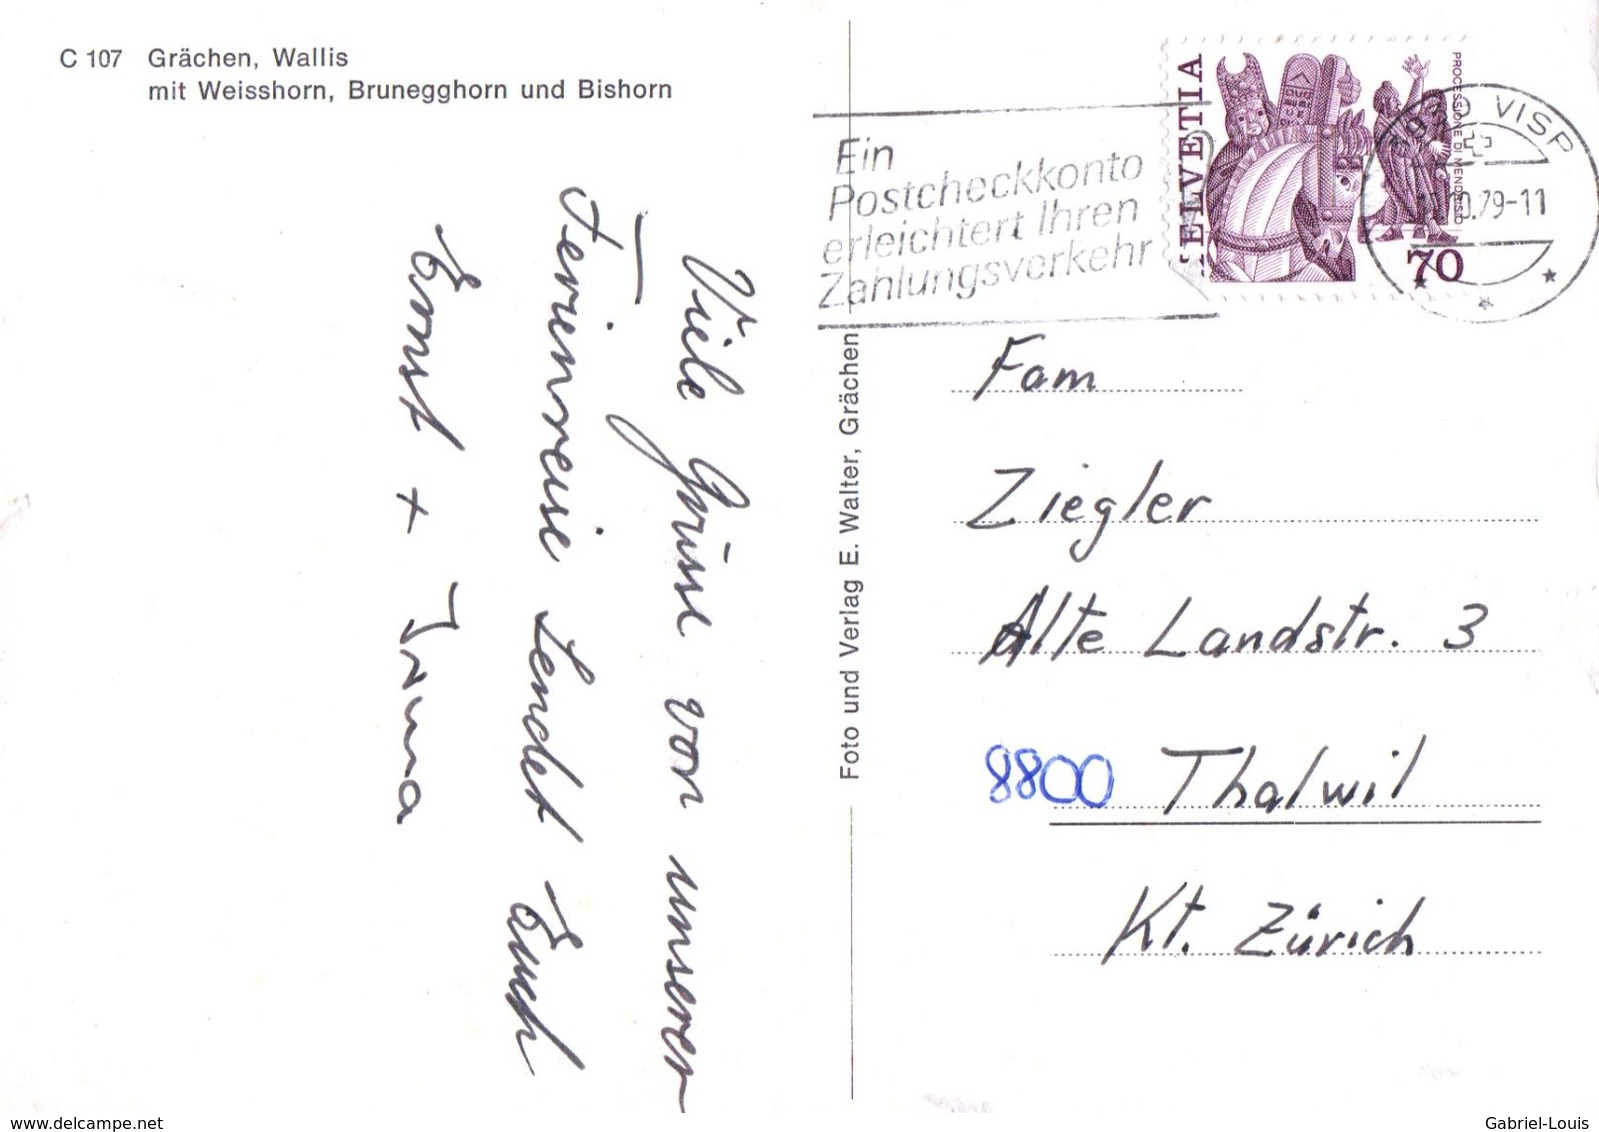 C 107 Grächen, Wallis
mit Weisshorn, Brunegghorn und Bishorn
Viele Grüsse von unserer
Ferienreise sendet Euch
Ernst + Irma
Foto und Verlag E. Walter, Grächen
Ein
Postcheckkonto
erleichtert Ihren
Zahlungsverkehr
HELVETIA
PROCESSIONE DI MENDRISIO
70
3930 VISP
10.79-11
Fam
Ziegler
Alte Landstr. 3
8800 Thalwil
Kt. Zürich
www.delcampe.net
Gabriel-Louis